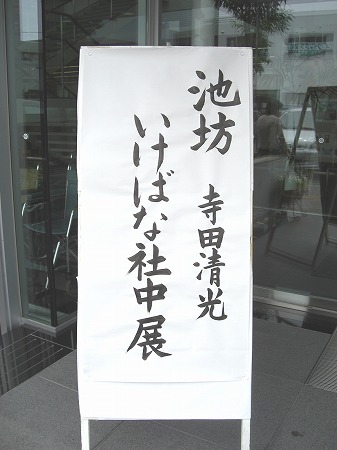 池坊 寺田清光
いけばな社中展